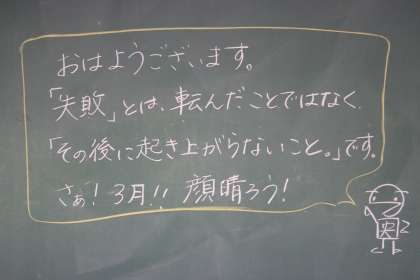 おはようございます。
「失敗」とは、転んだことではなく、
「その後に起き上がらないこと。」です。
さぁ！3月!! 顔晴ろう！